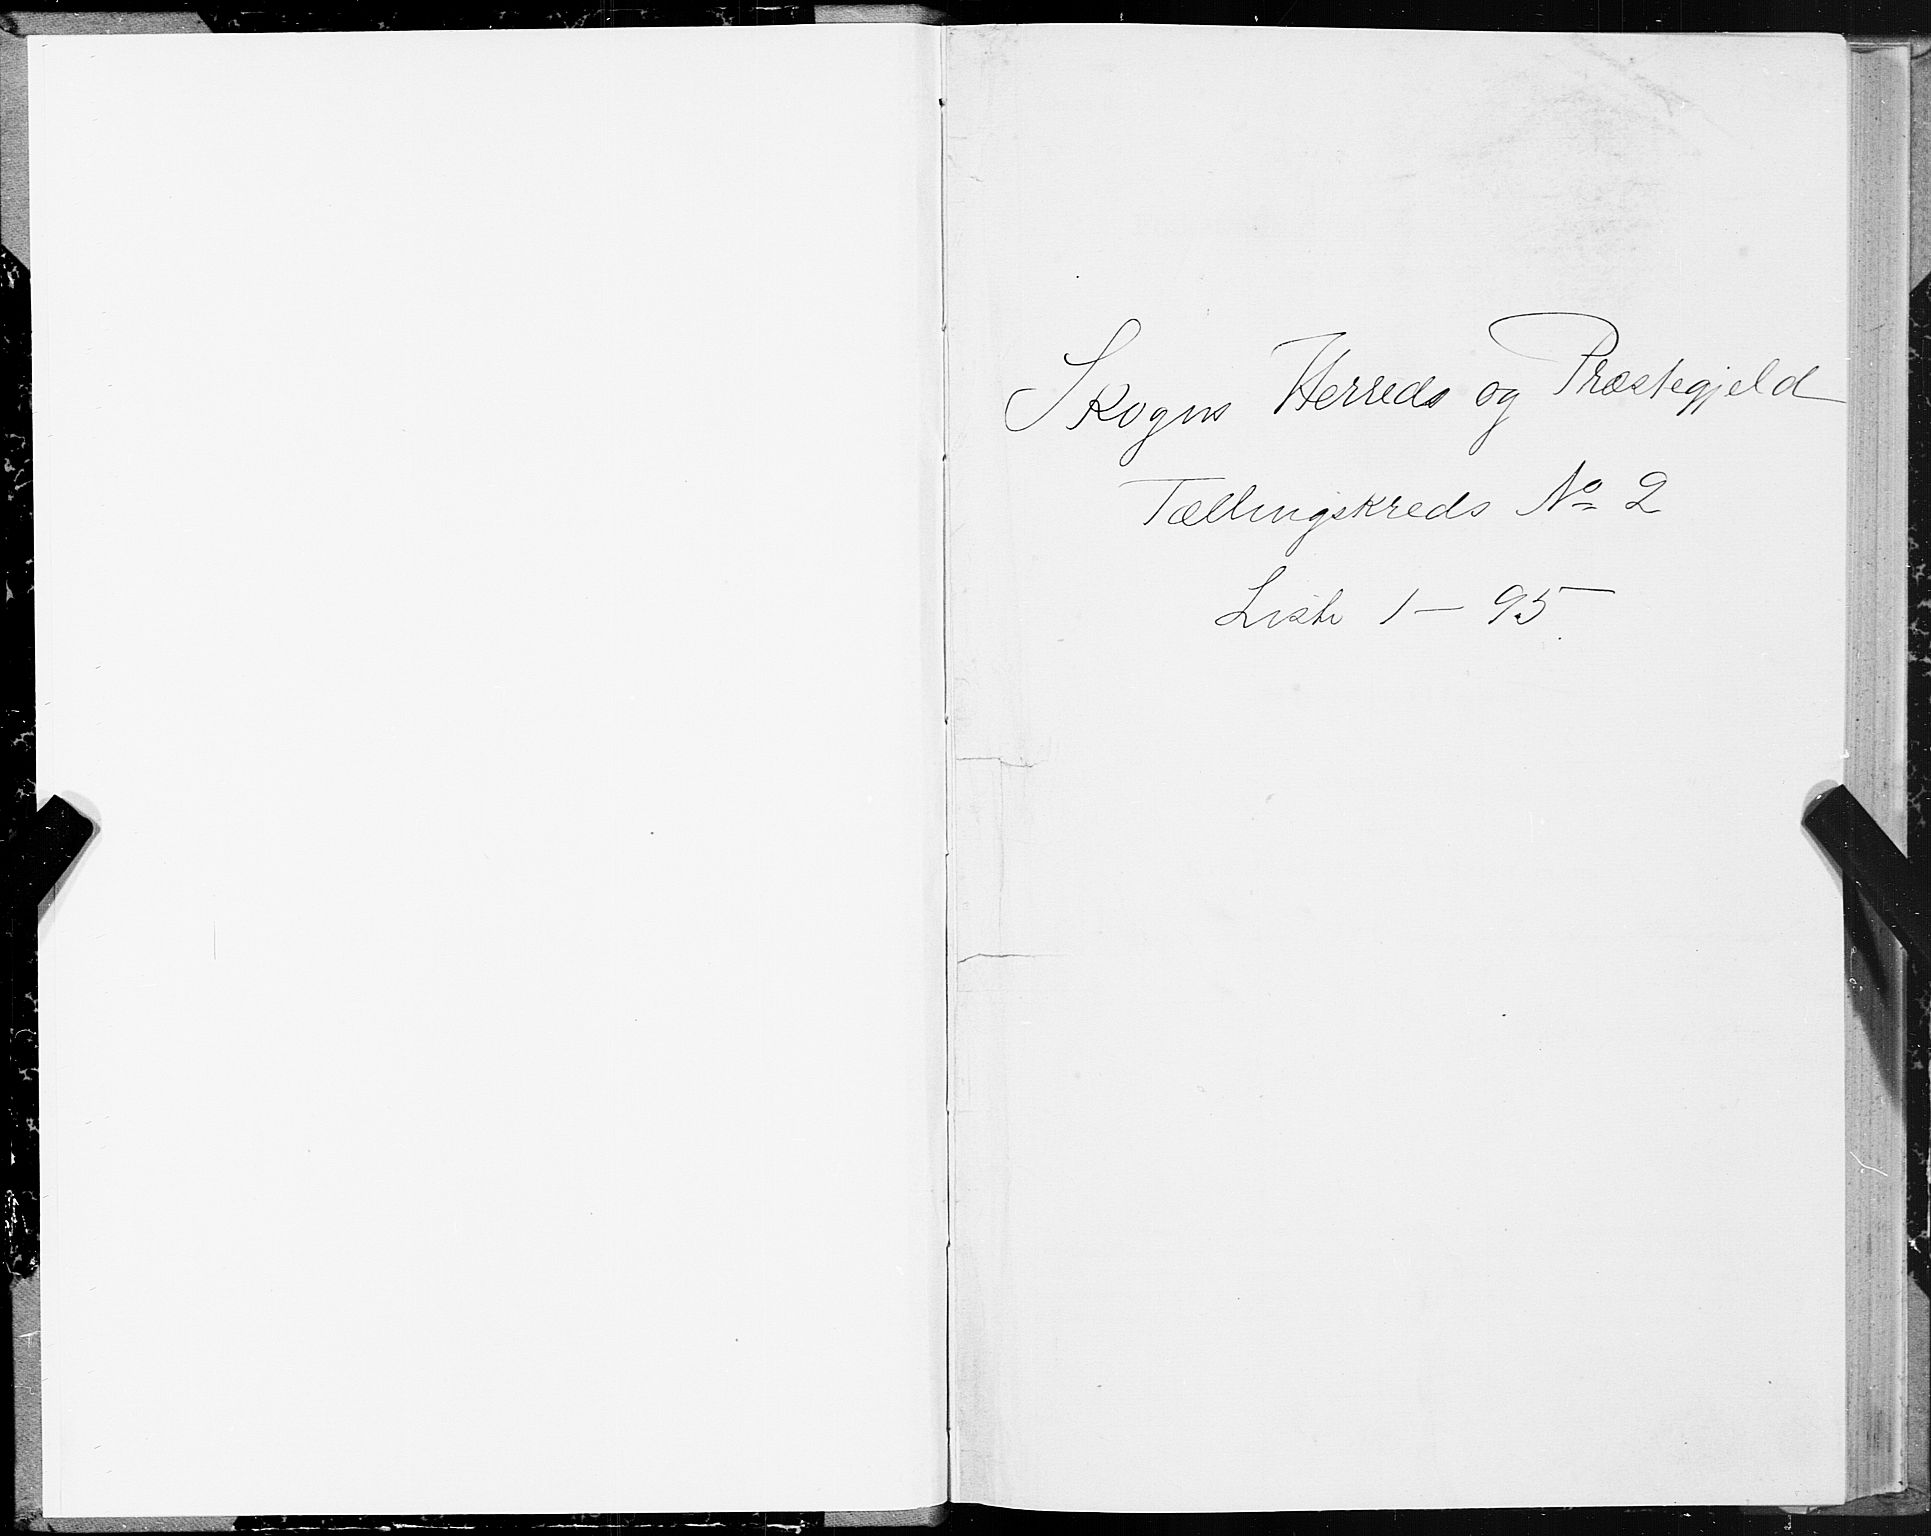 Skogns Herreds og Præstegjeld
Tællingskreds No 2
Liste 1 – 95